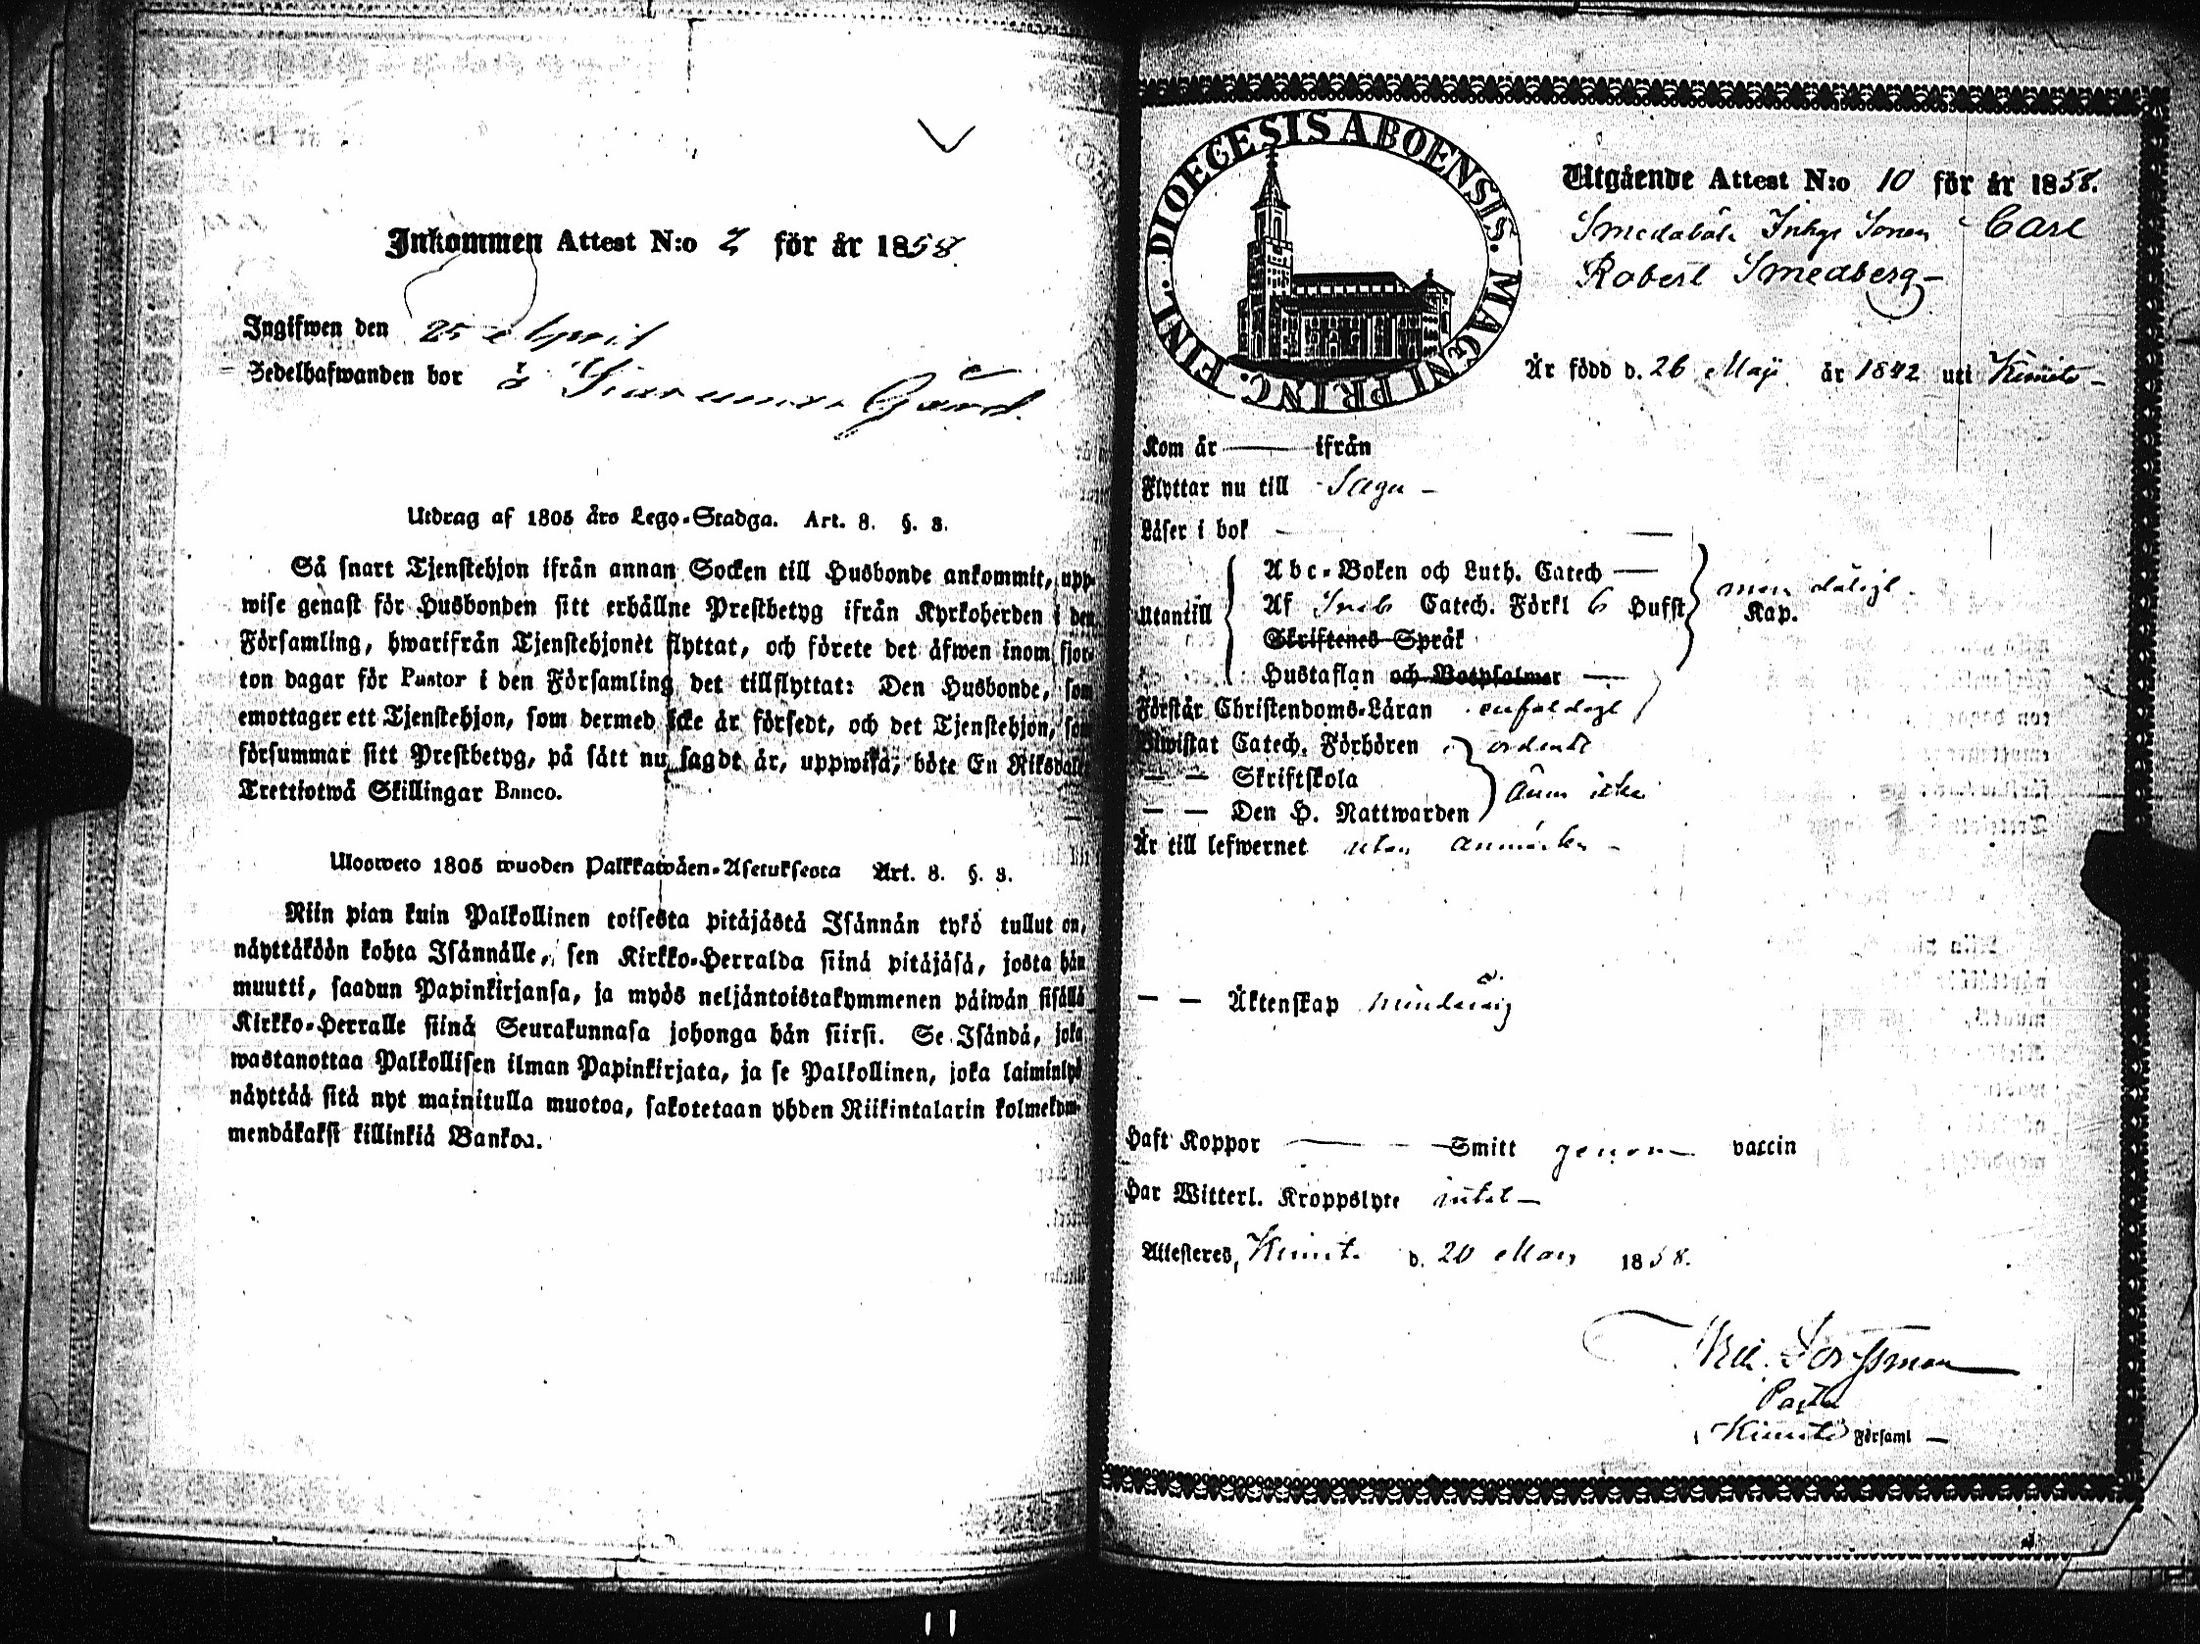 Inkommen Attest N:o 2 för år 1858.
Ingifwen den 25 April
Zedelhafwanden bor å Gård.
Utdrag af 1805 års Lego-Stadga. Art. 8. §. 3.
Så snart Tjenstehjon ifrån annan Socken till Husbonde ankommit, upp-
wise genast för Husbonden sitt erhållne Prestbetyg ifrån Kyrkoherden i den
Församling, hwarifrån Tjenstehjonet flyttat, och förete det äfwen inom fjor-
ton dagar för Pastor i den Församling det tillflyttat: Den Husbonde, som
emottager ett Tjenstehjon, som dermed icke är försedt, och det Tjenstehjon, som
försummar sitt Prestbetyg, på sätt nu sagdt är, uppwisa, böte En Riksdaler
Trettiotwå Skillingar Banco.
Ulosweto 1805 wuoden Palkkawäen-Asetuksesta Art. 8. §. 3.
Niin pian kuin Palkollinen toisesta pitäjästä Isännän tykö tullut on,
näyttäköön kohta Isännälle, sen Kirkko-Herralda siinä pitäjäsä, josta hän
muutti, saadun Papinkirjansa, ja myös neljäntoistakymmenen päiwän sisällä
Kirkko-Herralle siinä Seurakunnasa johonga hän siirsi. Se Isändä, joka
wastanottaa Palkollisen ilman Papinkirjata, ja se Palkollinen, joka laiminlyö
näyttää sitä nyt mainitulla muotoa, sakotetaan yhden Riikintalarin kolmekym-
mendäkaksi killinkiä Bankoa.
DIOECESIS ABOENSIS. MAGNI PRINC. FINL.
Utgående Attest N:o 10 för år 1858.
Sonen Carl
Robert Smedberg
Är född d. 26 Maji år 1842 uti Kimito
Kom år — ifrån
Flyttar nu till Sagu
Läser i bok
Utantill
Abc-Boken och Luth. Catech
men dåligt
Af Catech. Förkl 6 Hufst Kap.
Skriftenes Språk
Hustaflan och Botpsalmer
Förstår Christendoms-Läran enfaldigt
Biwistat Catech. Förhören ordentl
— — Skriftskola
ännu icke
— — Den H. Nattwarden
Är till lefwernet utan anmärkn
— — Äktenskap minderårig
Haft Koppor — Smitt genom vaccin
Har Witterl. Kroppslyte intet
Attesteres, Kimito d. 20 Mars 1858.
Pastor
Kimito Församl
11